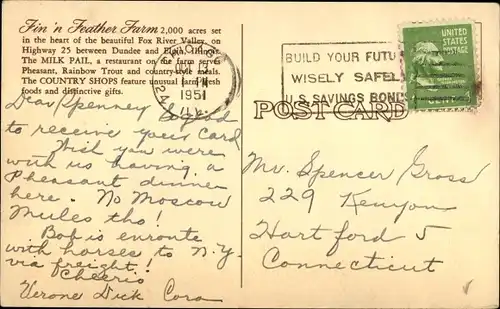 Fin 'n Feather Farm 2,000 acres set
in the heart of the beautiful Fox River Valley, on
Highway 25 between Dundee and Elgin, Illinois.
The MILK PAIL, a restaurant on the farm serves
Pheasant, Rainbow Trout and country-style meals.
The COUNTRY SHOPS feature unusual farm fresh
foods and distinctive gifts.
1951
BUILD YOUR FUTU
WISELY SAFEL
U.S. SAVINGS BOND
UNITED
STATES
POSTAGE
POST CARD
Dear Spenney
to receive your card
Wish you were
with us having a
Pheasant dinner
here. No Moscow
Mules tho!
Bob is enroute
with horses to N.Y.
via freight!
Cheerio
Verone Dick Cora
Mr. Spencer Gross
229 Kenyon
Hartford 5
Connecticut